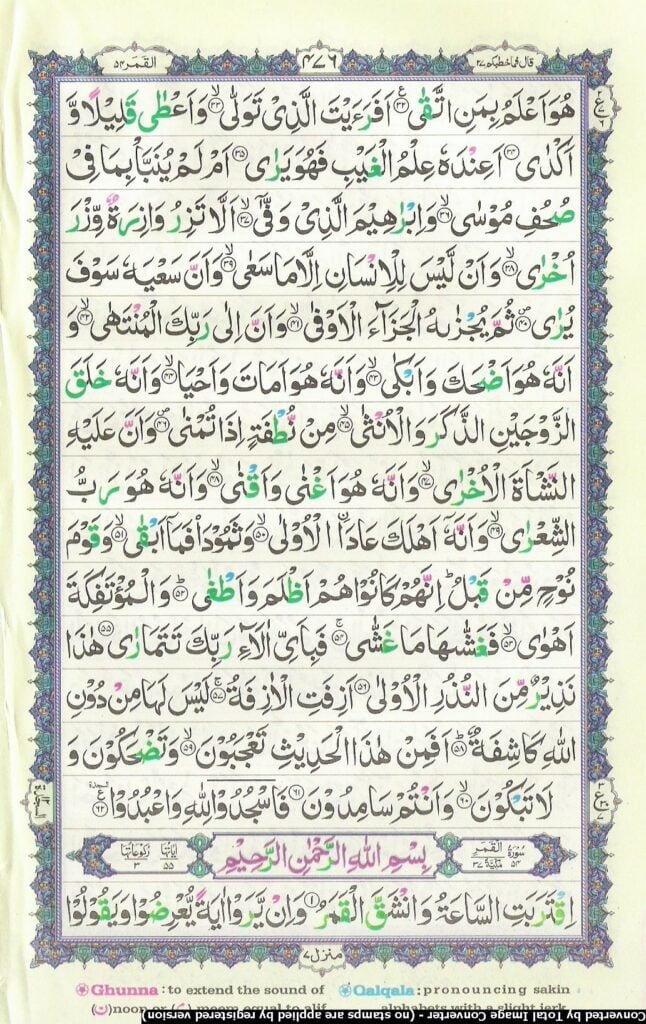 قال فما خطبكم ٢٧
٤٧٦
القمر ٥٤
هُوَ اَعْلَمُ بِمَنِ اتَّقٰى ۳۲ اَفَرَءَيْتَ الَّذِىْ تَوَلّٰى ۳۳ وَاَعْطٰى قَلِيْلًا وَّ
اَكْدٰى ۳۴ اَعِنْدَهٗ عِلْمُ الْغَيْبِ فَهُوَ يَرٰى ۳۵ اَمْ لَمْ يُنَبَّاْ بِمَا فِىْ
صُحُفِ مُوْسٰى ۳۶ وَاِبْرٰهِيْمَ الَّذِىْ وَفّٰٓى ۳۷ اَلَّا تَزِرُ وَازِرَةٌ وِّزْرَ
اُخْرٰى ۳۸ وَاَنْ لَّيْسَ لِلْاِنْسَانِ اِلَّا مَا سَعٰى ۳۹ وَاَنَّ سَعْيَهٗ سَوْفَ
يُرٰى ۴۰ ثُمَّ يُجْزٰىهُ الْجَزَآءَ الْاَوْفٰى ۴۱ وَاَنَّ اِلٰى رَبِّكَ الْمُنْتَهٰى ۴۲ وَ
اَنَّهٗ هُوَ اَضْحَكَ وَاَبْكٰى ۴۳ وَاَنَّهٗ هُوَ اَمَاتَ وَاَحْيَا ۴۴ وَاَنَّهٗ خَلَقَ
الزَّوْجَيْنِ الذَّكَرَ وَالْاُنْثٰى ۴۵ مِنْ نُّطْفَةٍ اِذَا تُمْنٰى ۴۶ وَاَنَّ عَلَيْهِ
النَّشْاَةَ الْاُخْرٰى ۴۷ وَاَنَّهٗ هُوَ اَغْنٰى وَاَقْنٰى ۴۸ وَاَنَّهٗ هُوَ رَبُّ
الشِّعْرٰى ۴۹ وَاَنَّهٗٓ اَهْلَكَ عَادَا۟ الْاُوْلٰى ۵۰ وَثَمُوْدَا۟ فَمَآ اَبْقٰى ۵۱ وَقَوْمَ
نُوْحٍ مِّنْ قَبْلُ ؕ اِنَّهُمْ كَانُوْا هُمْ اَظْلَمَ وَاَطْغٰى ۵۲ وَالْمُؤْتَفِكَةَ
اَهْوٰى ۵۳ فَغَشّٰىهَا مَا غَشّٰى ۵۴ فَبِاَىِّ اٰلَآءِ رَبِّكَ تَتَمَارٰى ۵۵ هٰذَا
نَذِيْرٌ مِّنَ النُّذُرِ الْاُوْلٰى ۵۶ اَزِفَتِ الْاٰزِفَةُ ۵۷ لَيْسَ لَهَا مِنْ دُوْنِ
اللّٰهِ كَاشِفَةٌ ۵۸ اَفَمِنْ هٰذَا الْحَدِيْثِ تَعْجَبُوْنَ ۵۹ وَتَضْحَكُوْنَ وَ
لَا تَبْكُوْنَ ۶۰ وَاَنْتُمْ سَامِدُوْنَ ۶۱ فَاسْجُدُوْا لِلّٰهِ وَاعْبُدُوْا ۶۲
سُوْرَةُ الْقَمَر ٥٤ مَكِّيَّةٌ ٣٧
بِسْمِ اللّٰهِ الرَّحْمٰنِ الرَّحِيْمِ
اٰيَاتُهَا ٥٥ رُكُوْعَاتُهَا ٣
اِقْتَرَبَتِ السَّاعَةُ وَانْشَقَّ الْقَمَرُ ۱ وَاِنْ يَّرَوْا اٰيَةً يُّعْرِضُوْا وَيَقُوْلُوْا
منزل ٧
Ghunna: to extend the sound of
Qalqala: pronouncing sakin
alphabets with a slight jerk
Converted by Total Image Converter - (no stamps are applied by registered version)